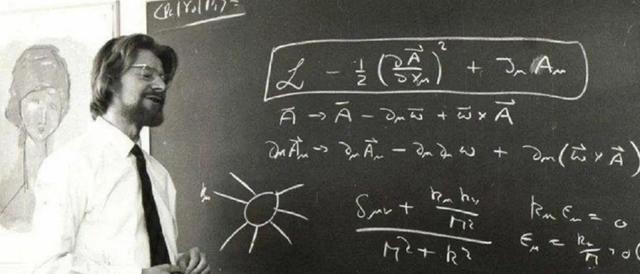 ℒ - ½ (∂A⃗/∂xμ)² + Jμ Aμ
A⃗ → A⃗ - ∂μ ω⃗ + ω⃗ × A⃗
∂μ A⃗μ → ∂μ A⃗μ - ∂μ ∂μ ω + ∂μ (ω⃗ × A⃗)
(δμν + kμ kν/M²)/(M² + k²) kμ εμ = 0